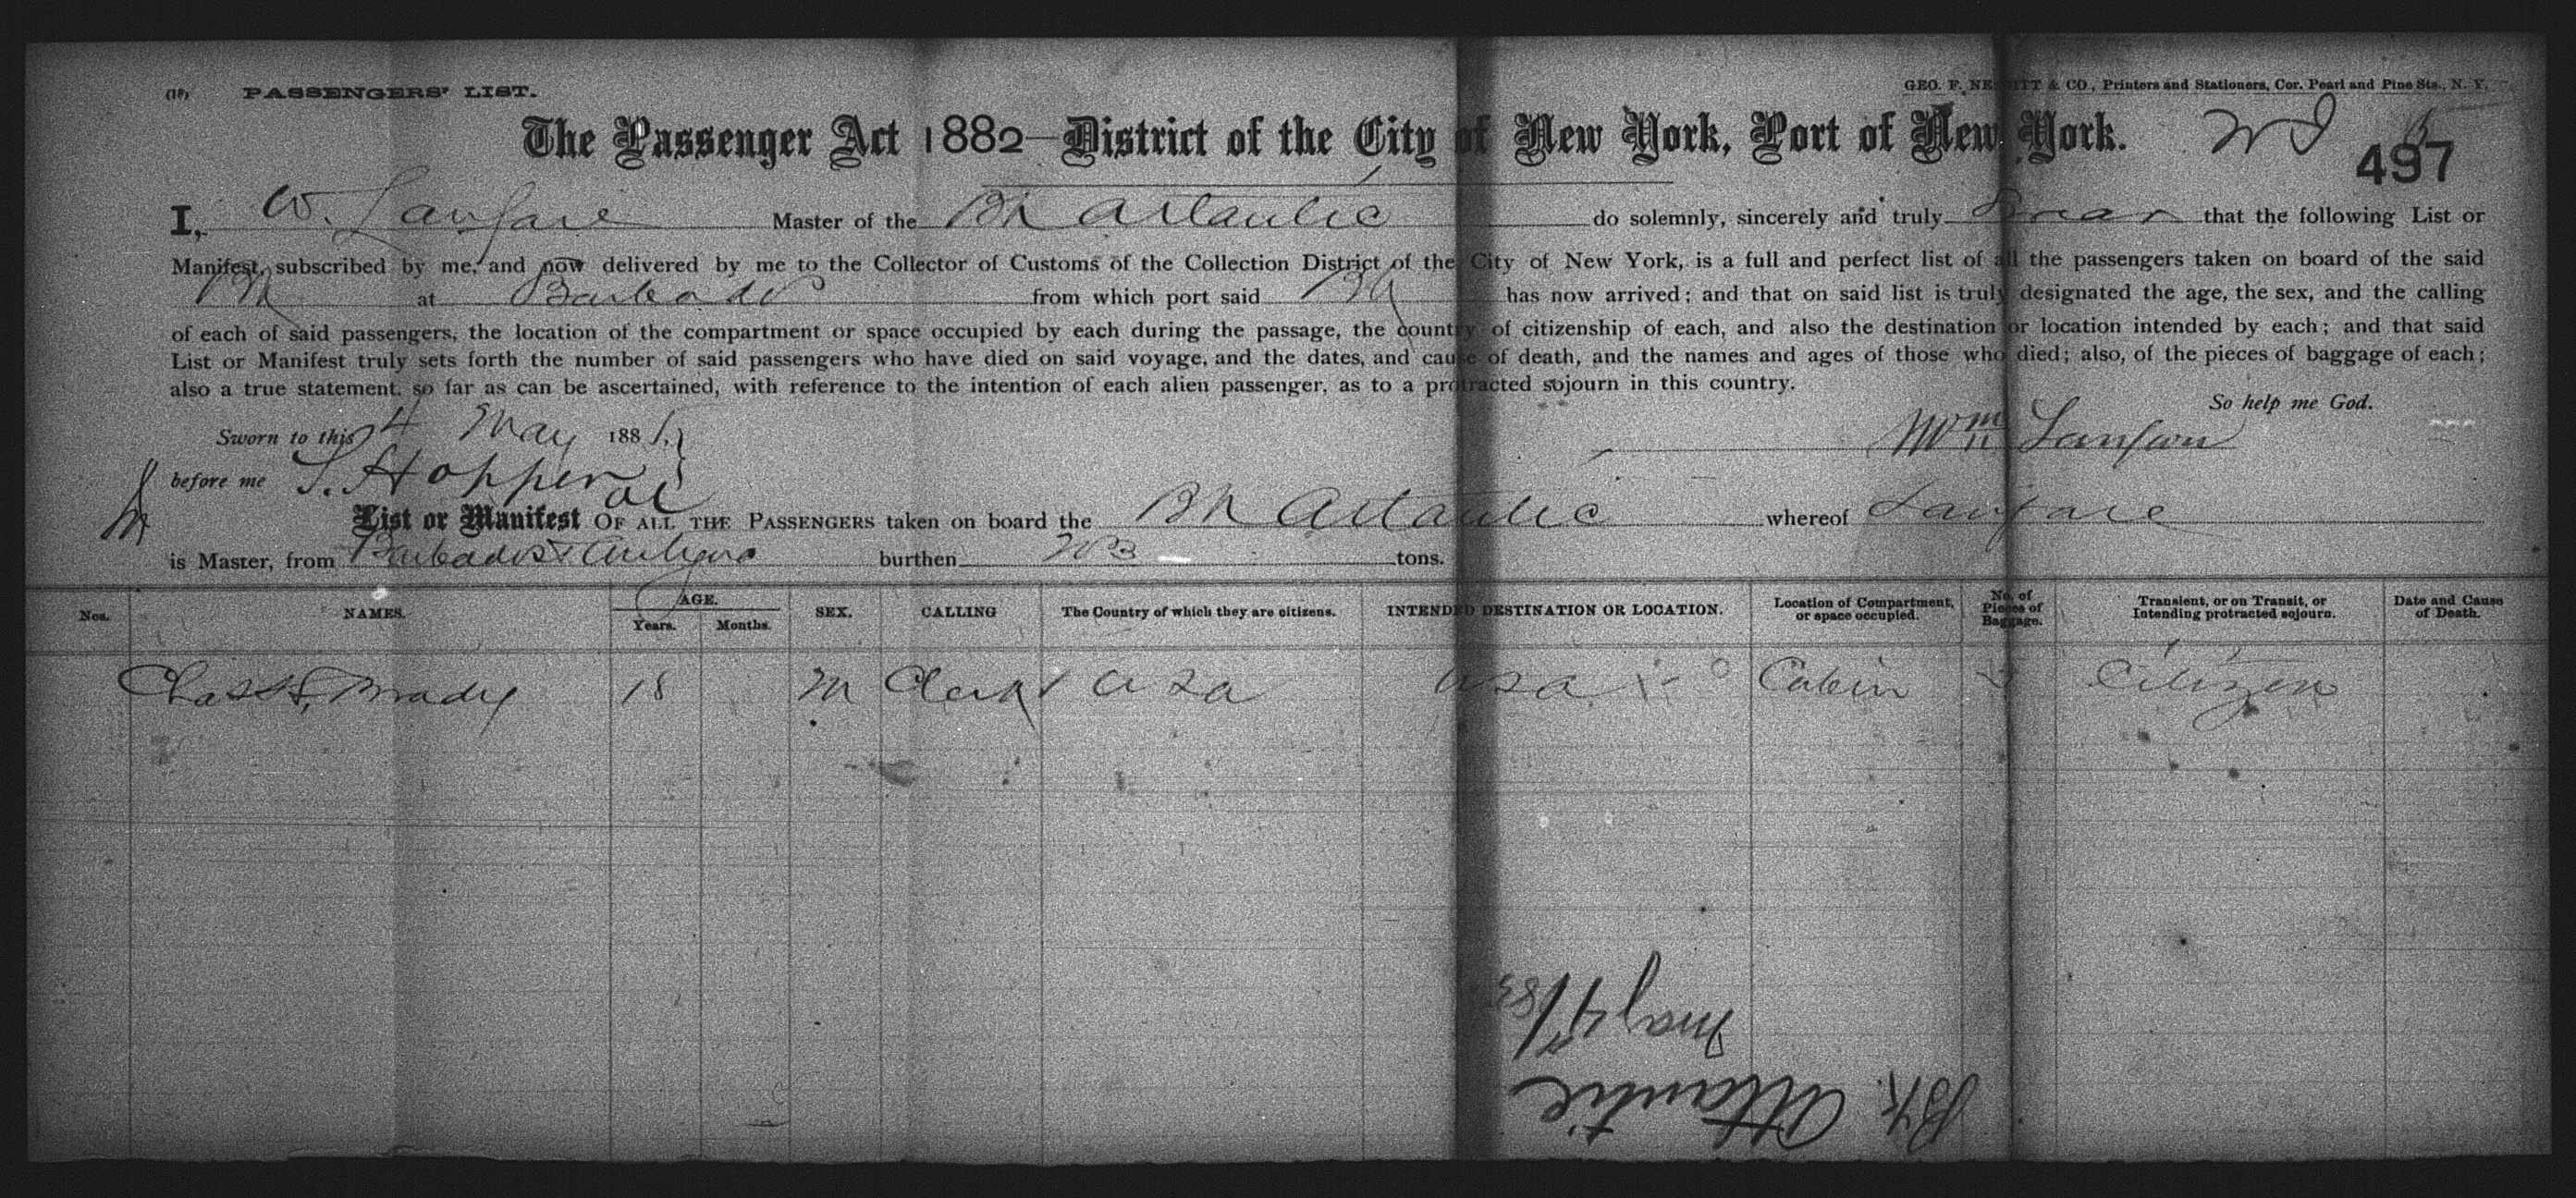 (18) PASSENGERS' LIST.
GEO. F. NESBITT & CO., Printers and Stationers, Cor. Pearl and Pine Sts., N. Y.
The Passenger Act 1882—District of the City of New York, Port of New York.
497
I, W. Lanfare Master of the Bk Atlantic do solemnly, sincerely and truly Swear that the following List or
Manifest, subscribed by me, and now delivered by me to the Collector of Customs of the Collection District of the City of New York, is a full and perfect list of all the passengers taken on board of the said
Bk at Barbados from which port said Bk has now arrived; and that on said list is truly designated the age, the sex, and the calling
of each of said passengers, the location of the compartment or space occupied by each during the passage, the country of citizenship of each, and also the destination or location intended by each; and that said
List or Manifest truly sets forth the number of said passengers who have died on said voyage, and the dates, and cause of death, and the names and ages of those who died; also, of the pieces of baggage of each;
also a true statement, so far as can be ascertained, with reference to the intention of each alien passenger, as to a protracted sojourn in this country.
So help me God.
Sworn to this 4 May 188
Wm Lanfare
before me S. Hopper
List or Manifest OF ALL THE PASSENGERS taken on board the Bk Atlantic whereof Lanfare
is Master, from Barbados & Antigua burthen tons.
Nos. NAMES. AGE. Years. Months. SEX. CALLING The Country of which they are citizens. INTENDED DESTINATION OR LOCATION. Location of Compartment, or space occupied. No. of Pieces of Baggage. Transient, or on Transit, or Intending protracted sojourn. Date and Cause of Death.
Chas H. 18 M Clerk USA USA Cabin Citizen
May 4/83
Bk. Atlantic